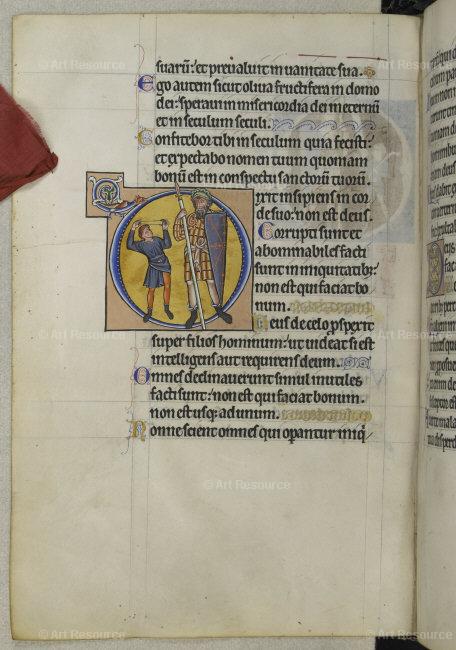 suarū: et preualuit in uanitate sua.
Ego autem sicut oliua fructifera in domo
dei: speraui in misericordia dei in eternū
et in seculum seculi.
Confitebor tibi in seculum quia fecisti:
et expectabo nomen tuum quoniam
bonū est in conspectu sanctorū tuorū.
Dixit insipiens in cor
de suo: non est deus.
Corrupti sunt et
abominabiles facti
sunt in iniquitatibꝰ:
non est qui faciat bo
num.
Deus de celo pspexit
super filios hominum: ut uideat si est
intelligens aut requirens deum.
Omnes declinauerunt simul inutiles
facti sunt: non est qui faciat bonum.
non est usqꝫ ad unum.
Nonne scient omnes qui opantur iniq̄
© Art Resource
© Art Resource
© Art Resource
© Art Resource
© Art Resource
© Art Resource
© Art Resource